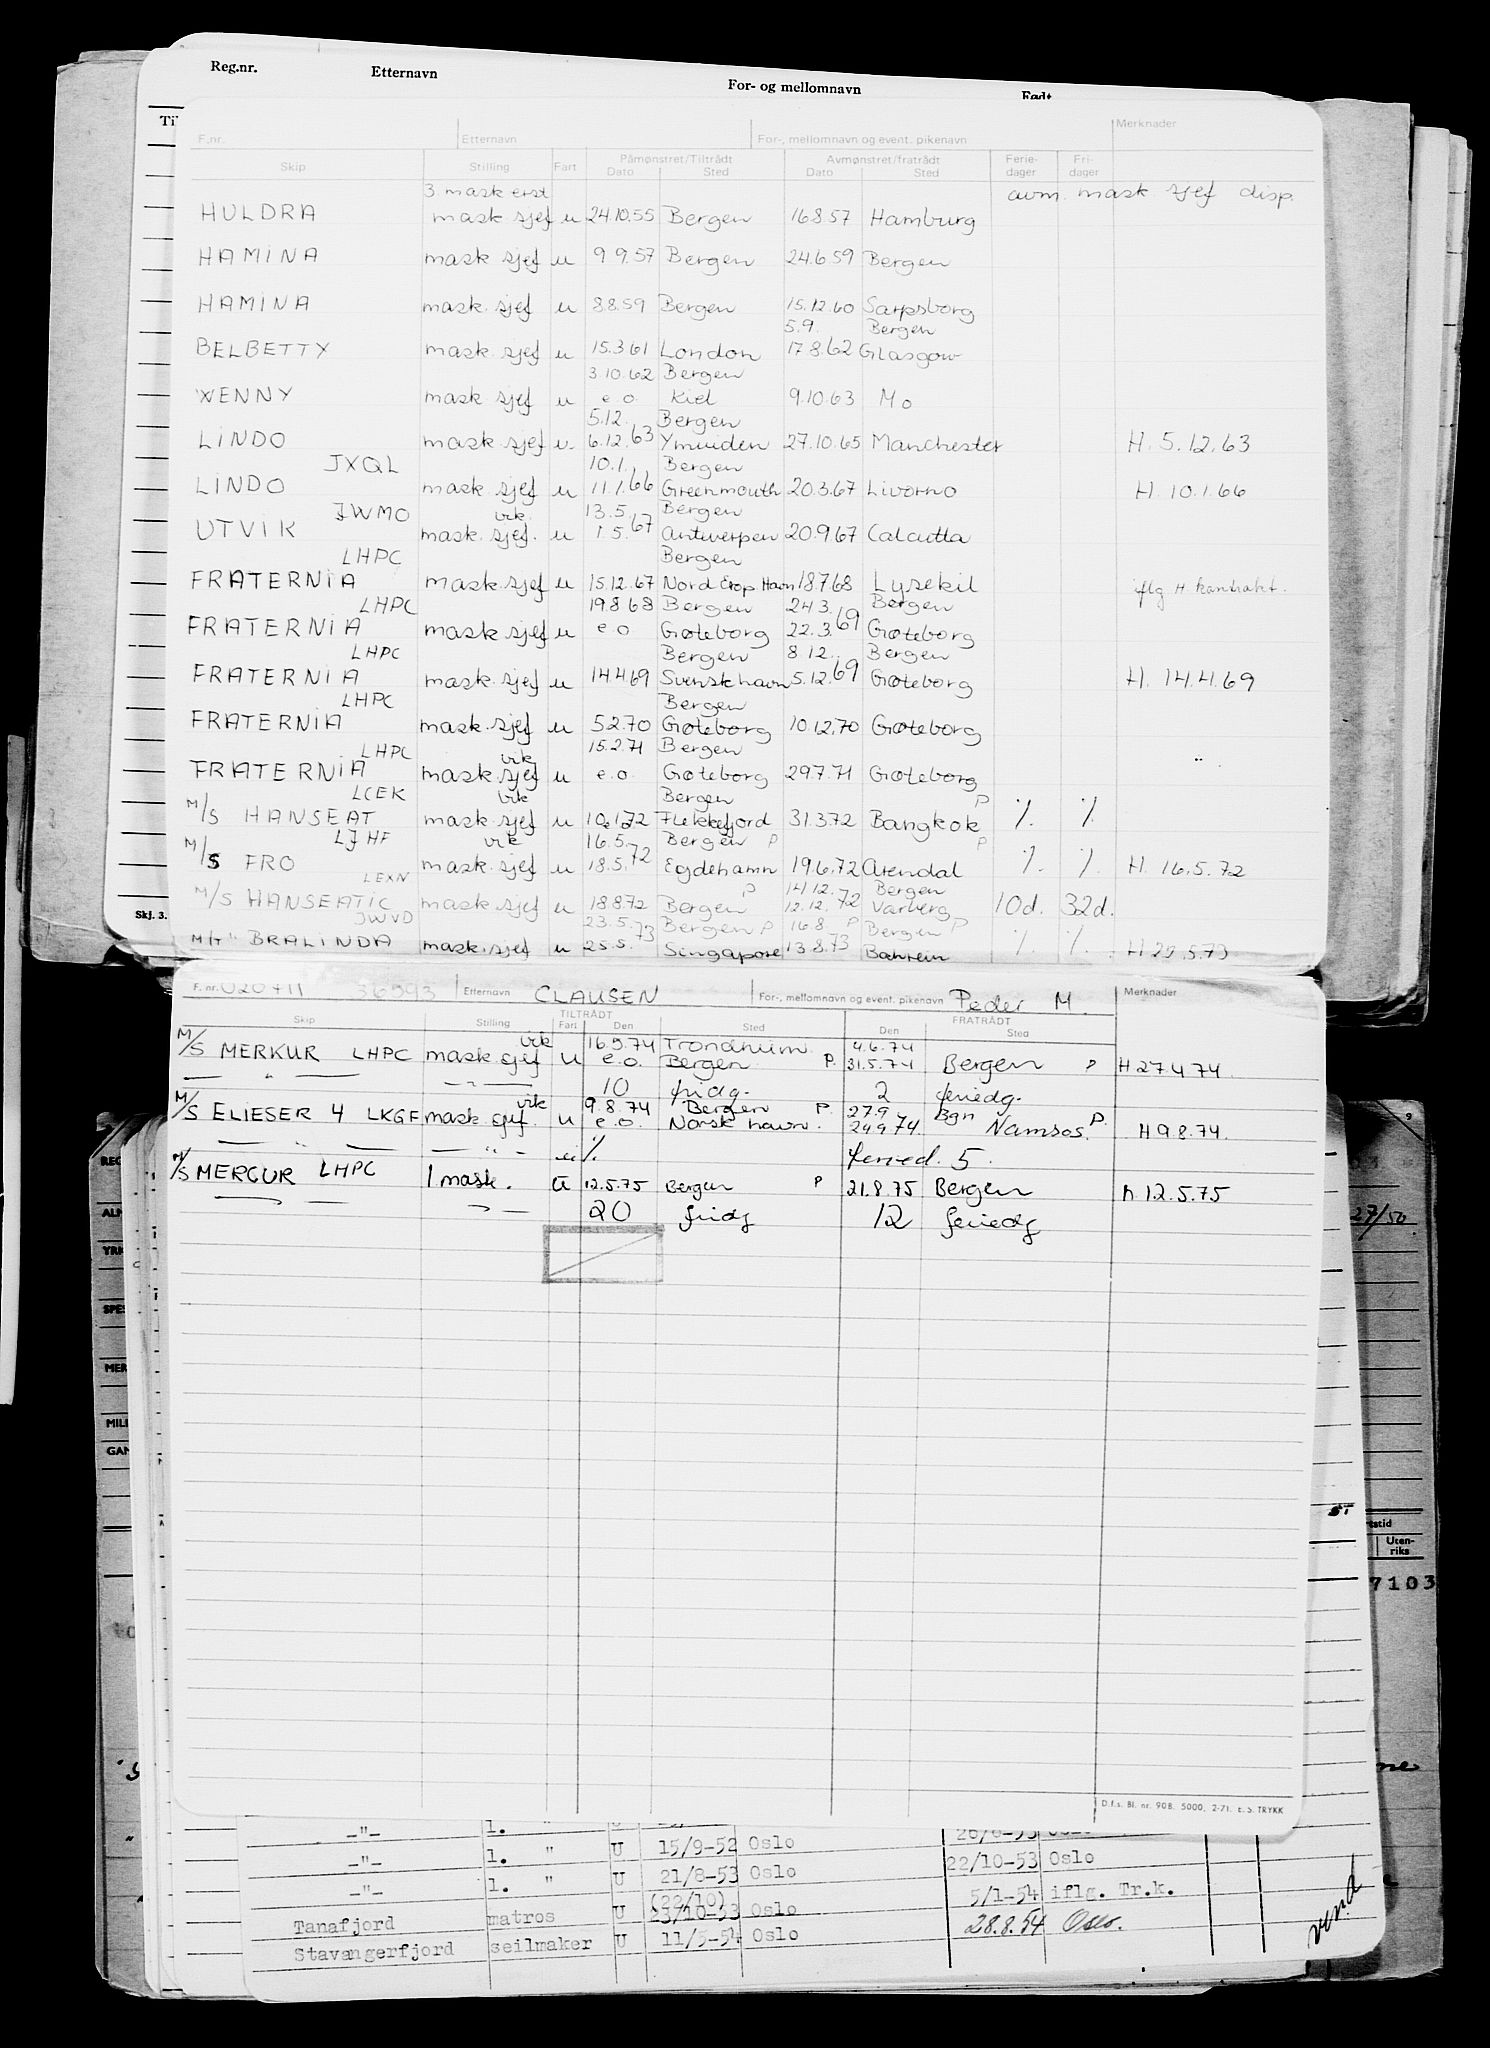 Reg.nr. Etternavn For- og mellomnavn Født
F.nr. Etternavn For-, mellomnavn og event. pikenavn Merknader
Skip Stilling Fart Påmønstret/Tiltrådt Avmønstret/fratrådt Ferie- Fri-
Dato Sted Dato Sted dager dager
3 mask erst avm. mask sjef disp.
HULDRA mask sjef u 24.10.55 Bergen 16.8.57 Hamburg
HAMINA mask sjef u 9.9.57 Bergen 24.6.59 Bergen
HAMINA mask. sjef u 8.8.59 Bergen 15.12.60 Sarpsborg
5.9. Bergen
BELBETTY mask sjef u 15.3.61 London 17.8.62 Glasgow
3.10.62 Bergen
WENNY mask sjef u e.o. Kiel 9.10.63 Mo
5.12. Bergen
LINDO mask sjef u. 6.12.63 Ymuiden 27.10.65 Manchester H. 5.12.63
JXQL 10.1. Bergen
LINDO mask sjef u 11.1.66 Greenmouth 20.3.67 Livorno H. 10.1.66
JWMO vik. 13.5. Bergen
UTVIK mask. sjef. u 1.5.67 Antwerpen 20.9.67 Calcutta
LHPC Bergen
FRATERNIA mask sjef u 15.12.67 Nord Erop Havn 18.7.68 Lysekil iflg H kontrakt.
LHPC 19.8.68 Bergen 24.3. Bergen
FRATERNIA mask sjef u e.o. Gøteborg 22.3.69 Gøteborg
LHPC Bergen 8.12. Bergen
FRATERNIA mask. sjef u 14.4.69 Svensk havn 5.12.69 Gøteborg H. 14.4.69
LHPC Bergen
FRATERNIA mask. sjef u 5.2.70 Gøteborg 10.12.70 Gøteborg
LHPC vik 15.2.71 Bergen
FRATERNIA mask sjef u e.o. Gøteborg 29.7.71 Gøteborg
LCEK vik Bergen P
M/S HANSEAT mask sjef u 10.1.72 Flekkefjord 31.3.72 Bangkok % %
LJHF vik 16.5. Bergen P P
M/S FRO mask. sjef u 18.5.72 Eydehamn 19.6.72 Arendal % % H. 16.5.72
LEXN P 14.12. Bergen
M/S HANSEATIC mask sjef u 18.8.72 Bergen 12.12.72 Varberg 10d. 32d.
JWVD 23.5. Bergen P 16.8. P Bergen P
M/T " BRALINDA mask.sjef u 25.5.73 Singapore 13.8.73 Bahrein % % H 23.5.73
Skj. 3.
F. nr. 020711 36593 Etternavn CLAUSEN For-, mellomnavn og event. pikenavn Peder M. Merknader
Skip Stilling TILTRÅDT FRATRÅDT
Fart Den Sted Den Sted
vik 16.5.74 Trondheim 4.6.74
M/S MERKUR LHPC mask sjef u e.o. Bergen P. 31.5.74 Bergen P H 27.4.74.
— " — — " — 10 fridg. 2 feriedg.
vik 9.8.74 Bergen P. 27.9 Bgn
M/S ELIESER 4 LKGF mask sjef. u e.o. Norsk havn. 24.9.74 Namsos. P. H 9.8.74.
— " — — " — u % feried. 5.
M/S MERCUR LHPC 1 mask. u 12.5.75 Bergen P 21.8.75 Bergen h. 12.5.75
— " — — " — 20 fridg 12 feriedg
27/50
Uten-
riks
7103
D.f.s. Bl. nr. 90B. 5000, 2-71. E.S. TRYKK
-"- 1. "
-"- 1. " U 15/9-52 Oslo
-"- 1. " U 21/8-53 Oslo 22/10-53 Oslo
(22/10) 5/1-54 iflg. Tr.k.
Tanafjord matros U 23/10-53 Oslo 28.8.54 Oslo.
Stavangerfjord seilmaker U 11/5-54 Oslo
vend